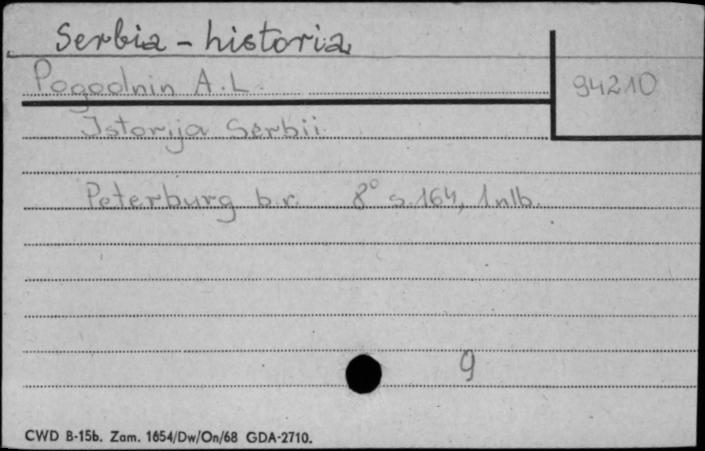 Serbia - historia
Pogodnin A. L.
94210
Istorija Serbii
Peterburg b.r. 8° s. 164, 1 nlb.
9
CWD B-15b. Zam. 1654/Dw/On/68 GDA-2710.